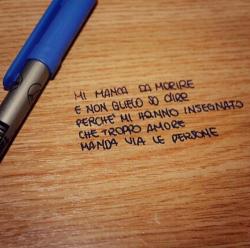 MI MANCA DA MORIRE
E NON GUELO SO DIRE
PERCHE' MI HANNO INSEGNATO
CHE TROPPO AMORE
MANDA VIA LE PERSONE